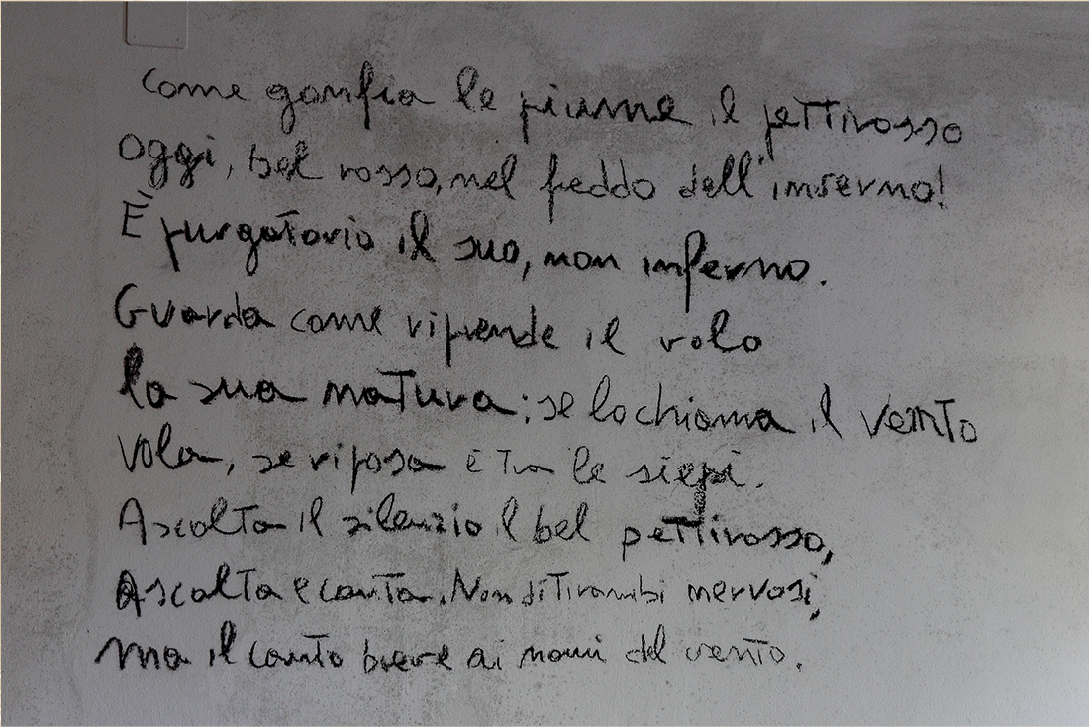 Come gonfia le piume il pettirosso
oggi, bel rosso, nel freddo dell'inverno!
È purgatorio il suo, non inferno.
Guarda come riprende il volo
la sua natura; se lo chiama il vento
vola, se riposa è tra le siepi.
Ascolta il silenzio il bel pettirosso,
Ascolta e canta. Non ditirambi nervosi,
ma il canto breve ai nomi del vento.